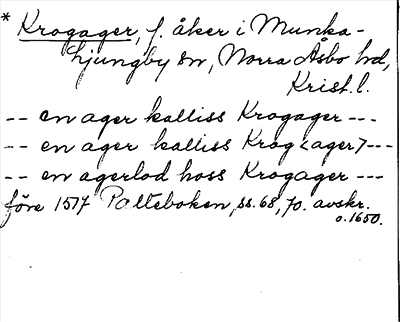 * Krogager, f. åker i Munka-
Ljungby sn, Norra Åsbo hd,
Krist. l.
-- en ager kalliss Krogager ---
-- en ager kalliss Krog<ager> ---
-- en agerlod hoss Krogager ---
före 1517 Palteboken, ss. 68, 70. avskr.
o. 1650.